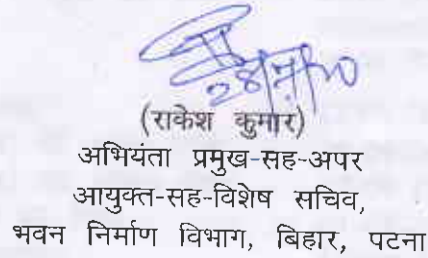 28/7/10
(राकेश कुमार)
अभियंता प्रमुख-सह-अपर
आयुक्त-सह-विशेष सचिव,
भवन निर्माण विभाग, बिहार, पटना